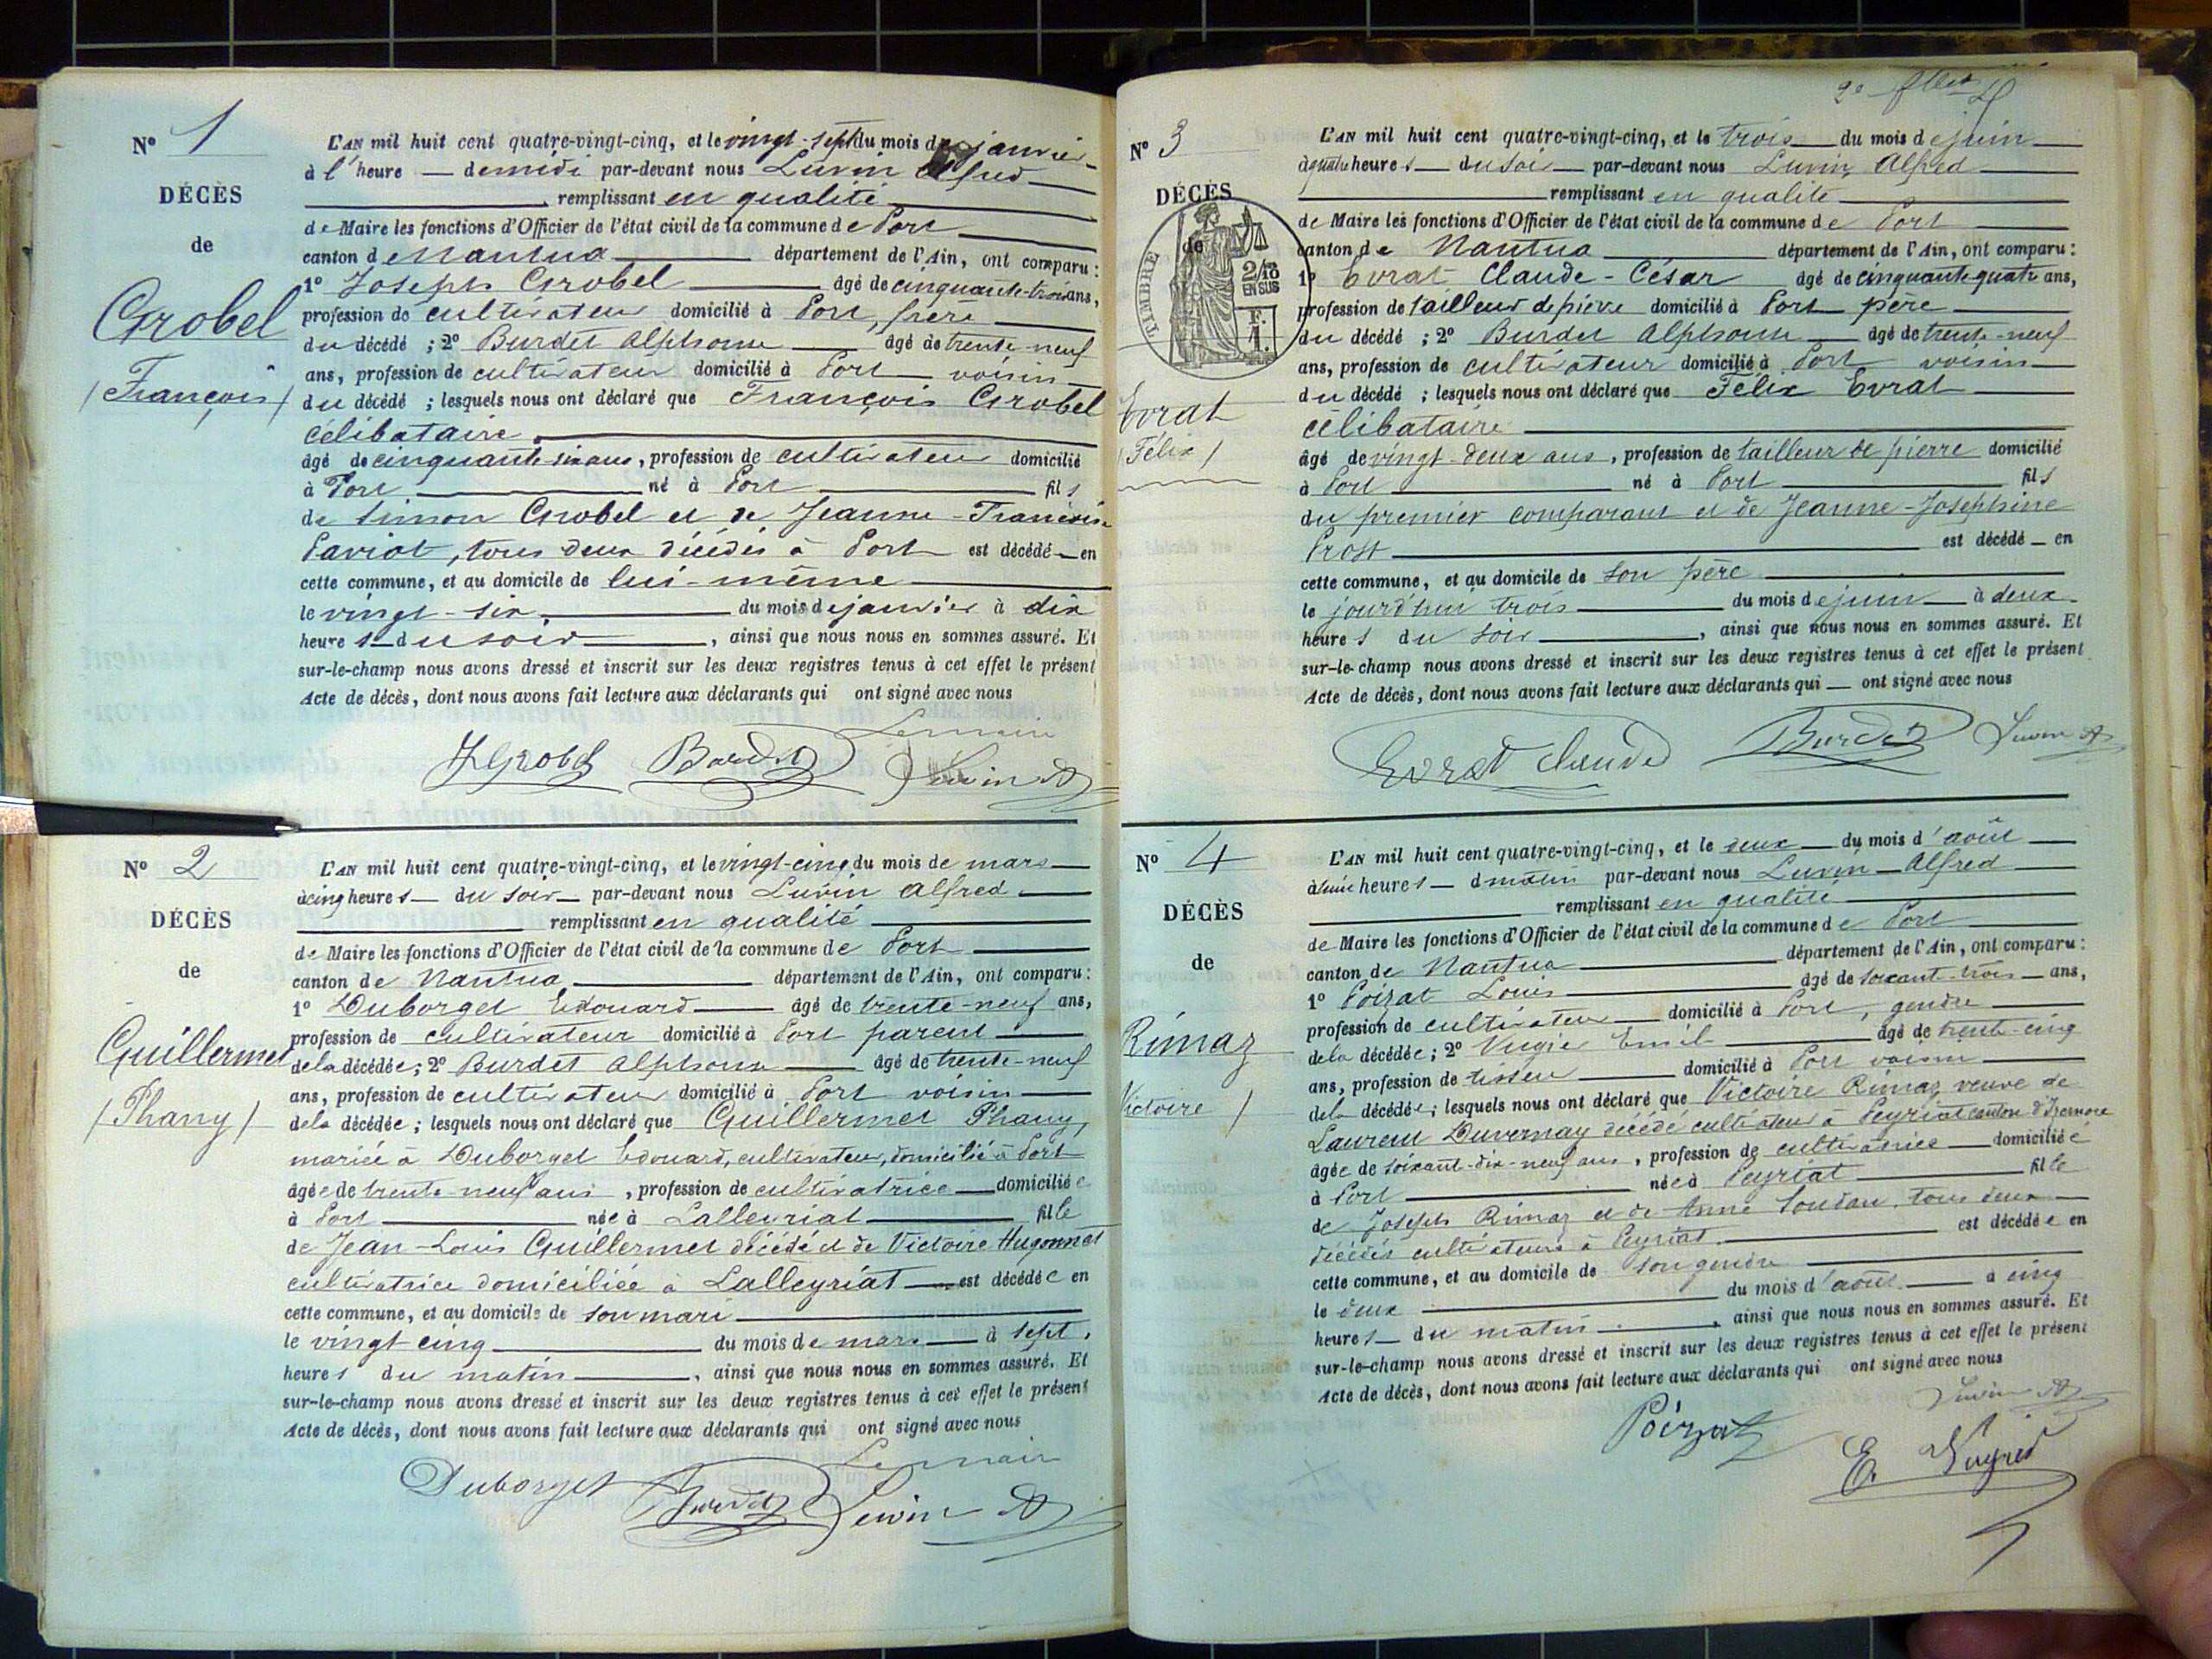 Nº 1
DÉCÈS
de
Grobel
(François)
L'AN mil huit cent quatre-vingt-cinq, et le vingt-sept du mois de janvier
à l'heure demidi par-devant nous Luvin Alfred
remplissant en qualité
de Maire les fonctions d'Officier de l'état civil de la commune de Port
canton de Nantua département de l'Ain, ont comparu :
1º Joseph Grobel âgé de cinquante-trois ans,
profession de cultivateur domicilié à Port, frère
du décédé ; 2º Burdet Alphonse âgé de trente-neuf
ans, profession de cultivateur domicilié à Port voisin
du décédé ; lesquels nous ont déclaré que François Grobel
célibataire
âgé de cinquante six ans, profession de cultivateur domicilié
à Port né à Port fils
de Simon Grobel et de Jeanne-Francoise
Pariot, tous deux décédés à Port est décédé en
cette commune, et au domicile de lui-même
le vingt-six du mois de janvier à dix
heures du soir, ainsi que nous nous en sommes assuré. Et
sur-le-champ nous avons dressé et inscrit sur les deux registres tenus à cet effet le présent
Acte de décès, dont nous avons fait lecture aux déclarants qui ont signé avec nous
Le maire
J Grobel Burdet Luvin A
Nº 2
DÉCÈS
de
Guillermet
(Phany)
L'AN mil huit cent quatre-vingt-cinq, et le vingt-cinq du mois de mars
à cinq heures du soir par-devant nous Luvin Alfred
remplissant en qualité
de Maire les fonctions d'Officier de l'état civil de la commune de Port
canton de Nantua département de l'Ain, ont comparu :
1º Duborget Edouard âgé de trente-neuf ans,
profession de cultivateur domicilié à Port parent
de la décédée ; 2º Burdet Alphonse âgé de trente-neuf
ans, profession de cultivateur domicilié à Port voisin
de la décédée ; lesquels nous ont déclaré que Guillermet Phany,
mariée à Duborget Edouard, cultivateur, domicilié à Port
âgée de trente-neuf ans, profession de cultivatrice domiciliée
à Port née à Lalleyriat fille
de Jean-Louis Guillermet décédé et de Victoire Hugonnet
cultivatrice domiciliée à Lalleyriat est décédée en
cette commune, et au domicile de son mari
le vingt cinq du mois de mars à sept
heures du matin, ainsi que nous nous en sommes assuré. Et
sur-le-champ nous avons dressé et inscrit sur les deux registres tenus à cet effet le présent
Acte de décès, dont nous avons fait lecture aux déclarants qui ont signé avec nous
Le maire
Duborget Burdet Luvin A
Nº 3
DÉCÈS
de
TIMBRE
2/10
EN SUS
F.
1.
Evrat
(Félix)
L'AN mil huit cent quatre-vingt-cinq, et le trois du mois de juin
à quatre heures du soir par-devant nous Luvin Alfred
remplissant en qualité
de Maire les fonctions d'Officier de l'état civil de la commune de Port
canton de Nantua département de l'Ain, ont comparu :
1º Evrat Claude-César âgé de cinquante quatre ans,
profession de tailleur de pierre domicilié à Port père
du décédé ; 2º Burdet Alphonse âgé de trente-neuf
ans, profession de cultivateur domicilié à Port voisin
du décédé ; lesquels nous ont déclaré que Félix Evrat
célibataire
âgé de vingt-deux ans, profession de tailleur de pierre domicilié
à Port né à Port fils
du premier comparant et de Jeanne-Joséphine
Prost est décédé en
cette commune, et au domicile de son père
le jourd'hui trois du mois de juin à deux
heures du soir, ainsi que nous nous en sommes assuré. Et
sur-le-champ nous avons dressé et inscrit sur les deux registres tenus à cet effet le présent
Acte de décès, dont nous avons fait lecture aux déclarants qui ont signé avec nous
Evrat Claude Burdet Luvin A
Nº 4
DÉCÈS
de
Rimaz
Victoire)
L'AN mil huit cent quatre-vingt-cinq, et le deux du mois d'août
heures d matin par-devant nous Luvin Alfred
remplissant en qualité
de Maire les fonctions d'Officier de l'état civil de la commune de Port
canton de Nantua département de l'Ain, ont comparu :
1º Poizat Louis âgé de soixant-trois ans,
profession de cultivateur domicilié à Port, gendre
de la décédée ; 2º Emile âgé de trente-cinq
ans, profession de tisseur domicilié à Port voisin
de la décédée ; lesquels nous ont déclaré que Victoire Rimaz veuve de
Laurent Duvernay décédé cultivateur à Peyriat canton d'Izernore
âgée de soixant-dix-neuf ans, profession de cultivatrice domiciliée
à Port née à Peyriat fille
de Joseph Rimaz et de Anne tous deux
décédés cultivateurs à Peyriat est décédée en
cette commune, et au domicile de son gendre
le deux du mois d'août à cinq
heures du matin, ainsi que nous nous en sommes assuré. Et
sur-le-champ nous avons dressé et inscrit sur les deux registres tenus à cet effet le présent
Acte de décès, dont nous avons fait lecture aux déclarants qui ont signé avec nous
Luvin A
Poizat
E.